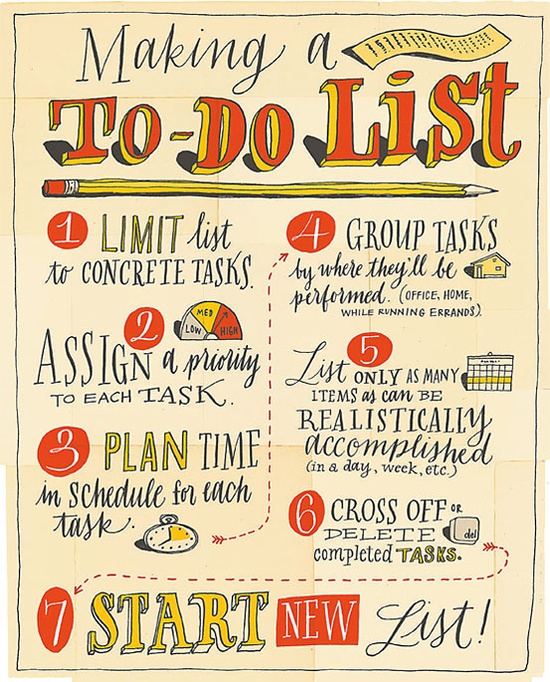 Making a
TO-DO LiSt
1 LIMIT list
to CONCRETE TASKS.
2
LOW MED HIGH
ASSIGN a priority
TO EACH TASK.
3 PLAN TIME
in schedule for each
task.
4 GROUP TASKS
by where they'll be
performed. (OFFICE, HOME,
WHILE RUNNING ERRANDS).
5
List ONLY AS MANY
ITEMS as can BE
REALISTICALLY
accomplished
(in a day, week, etc.)
6 CROSS OFF OR
DELETE del
completed TASKS.
7 START NEW List!